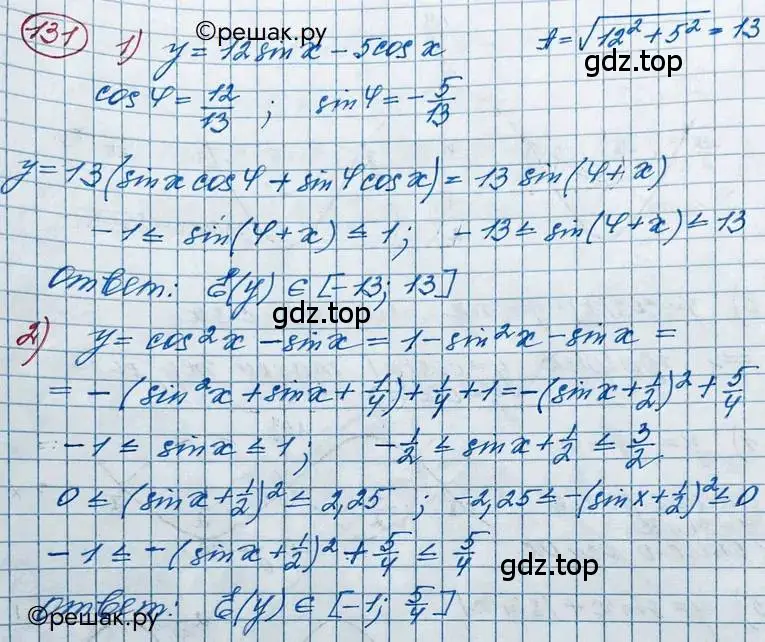 ©решак.ру
131 1) y = 12 sin x − 5 cos x A = √(12² + 5²) = 13
гдз.top
cos φ = 12/13 ; sin φ = − 5/13
y = 13 (sin x cos φ + sin φ cos x) = 13 sin (φ + x)
−1 ≤ sin (φ + x) ≤ 1; −13 ≤ sin (φ + x) ≤ 13
Ответ: E(y) ∈ [−13; 13]
гдз.top
2) y = cos² x − sin x = 1 − sin² x − sin x =
= − (sin² x + sin x + 1/4) + 1/4 + 1 = −(sin x + 1/2)² + 5/4
−1 ≤ sin x ≤ 1; −1/2 ≤ sin x + 1/2 ≤ 3/2
0 ≤ (sin x + 1/2)² ≤ 2,25 ; −2,25 ≤ −(sin x + 1/2)² ≤ 0
−1 ≤ −(sin x + 1/2)² + 5/4 ≤ 5/4
гдз.top
Ответ: E(y) ∈ [−1; 5/4]
©решак.ру